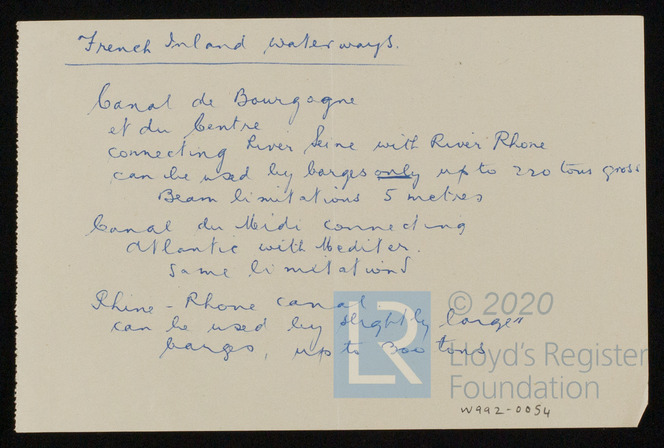 French Inland waterways.
Canal de Bourgogne
et du Centre
connecting River Seine with River Rhone
can be used by barges only up to 220 tons gross
Beam limitations 5 metres
Canal du Midi connecting
Atlantic with Mediter.
Same limitations
Rhine - Rhone canal
can be used by slightly larger
barges, up to 300 tons
LR
© 2020
Lloyd's Register
Foundation
W992-0054